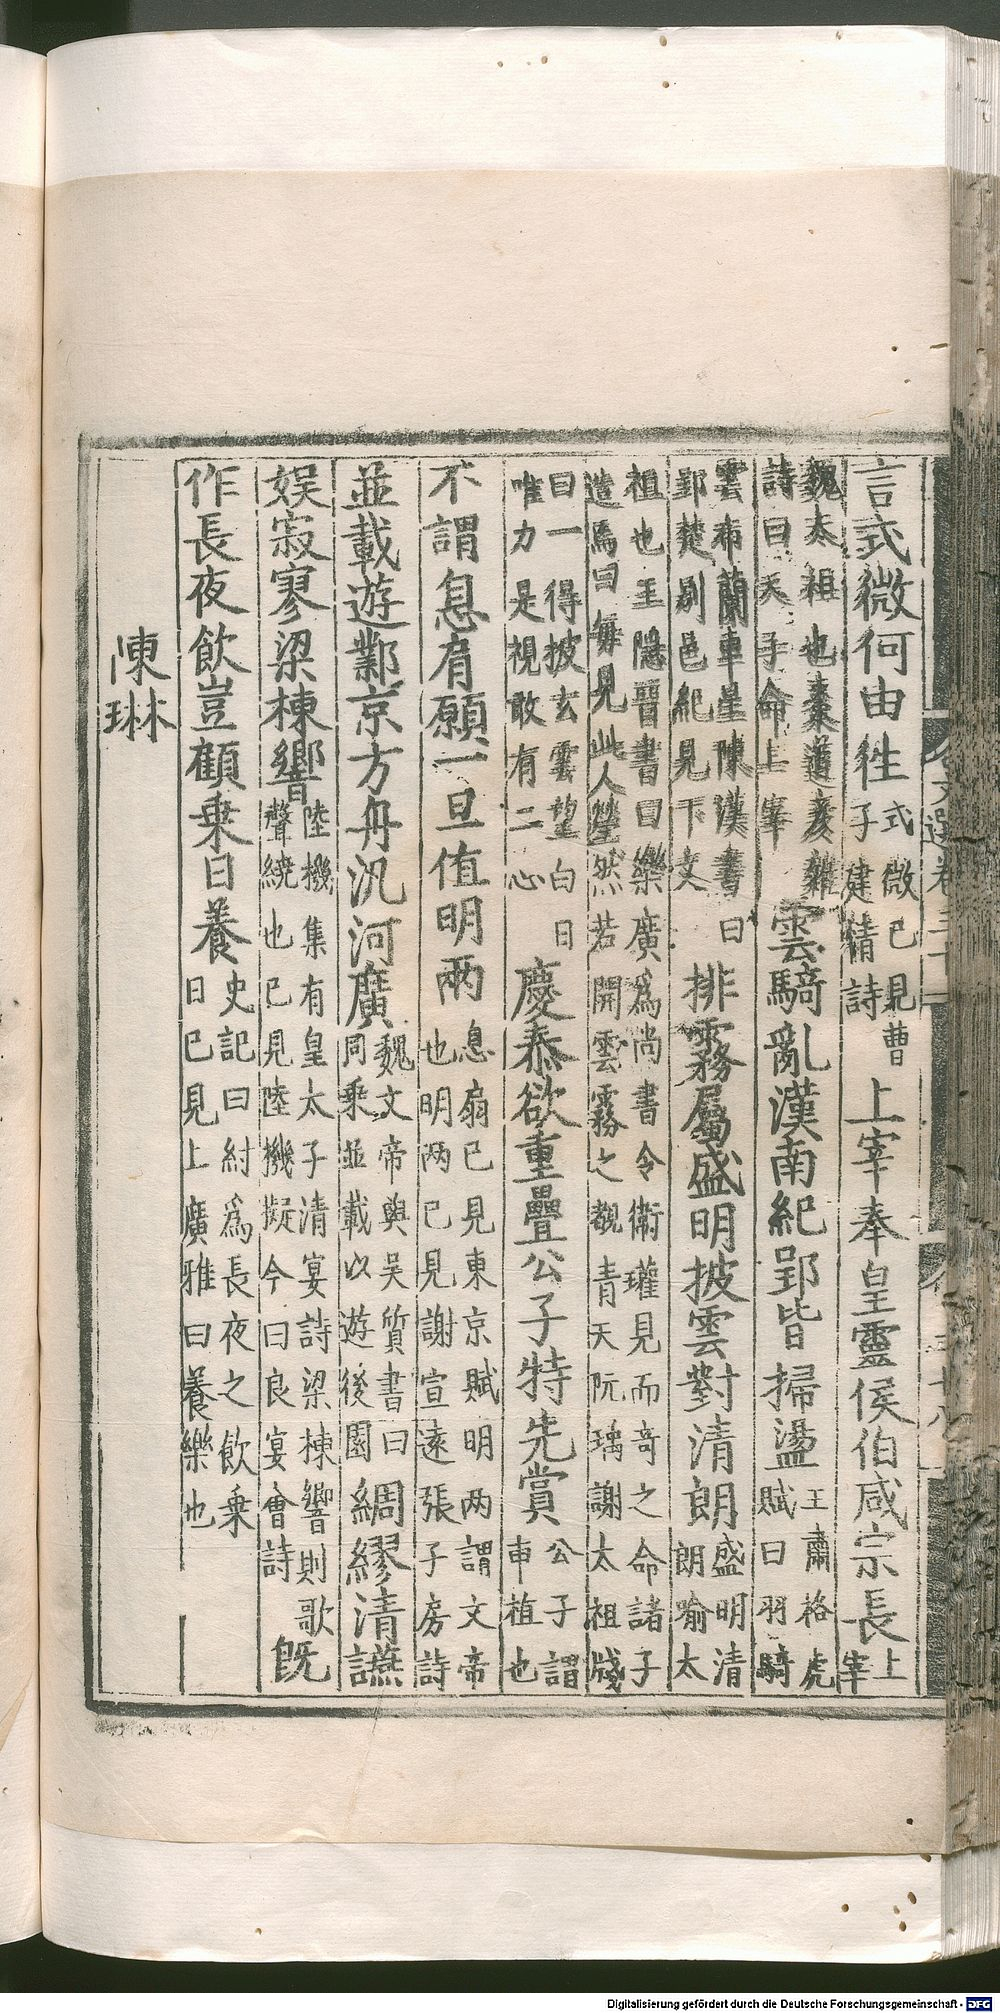 言式微何由往式微已見曹子建情詩上宰奉皇靈侯伯咸宗長上宰
魏太祖也棗道彥雜詩曰天子命上宰雲騎亂漢南紀郢皆掃盪王肅格虎賦曰羽騎
雲布蘭車星陳漢書曰郢楚別邑紀見下文排霧屬盛明披雲對清朗盛明清朗喻太
祖也王隱晉書曰樂廣為尚書令衛瓘見而奇之命諸子造焉曰每見此人瑩然若開雲霧之覩青天阮瑀謝太祖牋
曰一得披玄雲望白日唯力是視敢有二心慶泰欲重疊公子特先賞公子謂曹植也
不謂息肩願一旦值明兩息肩已見東京賦明兩謂文帝也明兩已見謝宣遠張子房詩
並載遊鄴京方舟汎河廣魏文帝與吳質書曰同乘並載以遊後園綢繆清讌
娛寂寥梁棟響陸機集有皇太子清宴詩梁棟響則歌聲繞也已見陸機擬今日良宴會詩既
作長夜飲豈顧乘日養史記曰紂為長夜之飲乘日已見上廣雅曰養樂也
陳琳
Digitalisierung gefördert durch die Deutsche Forschungsgemeinschaft - DFG